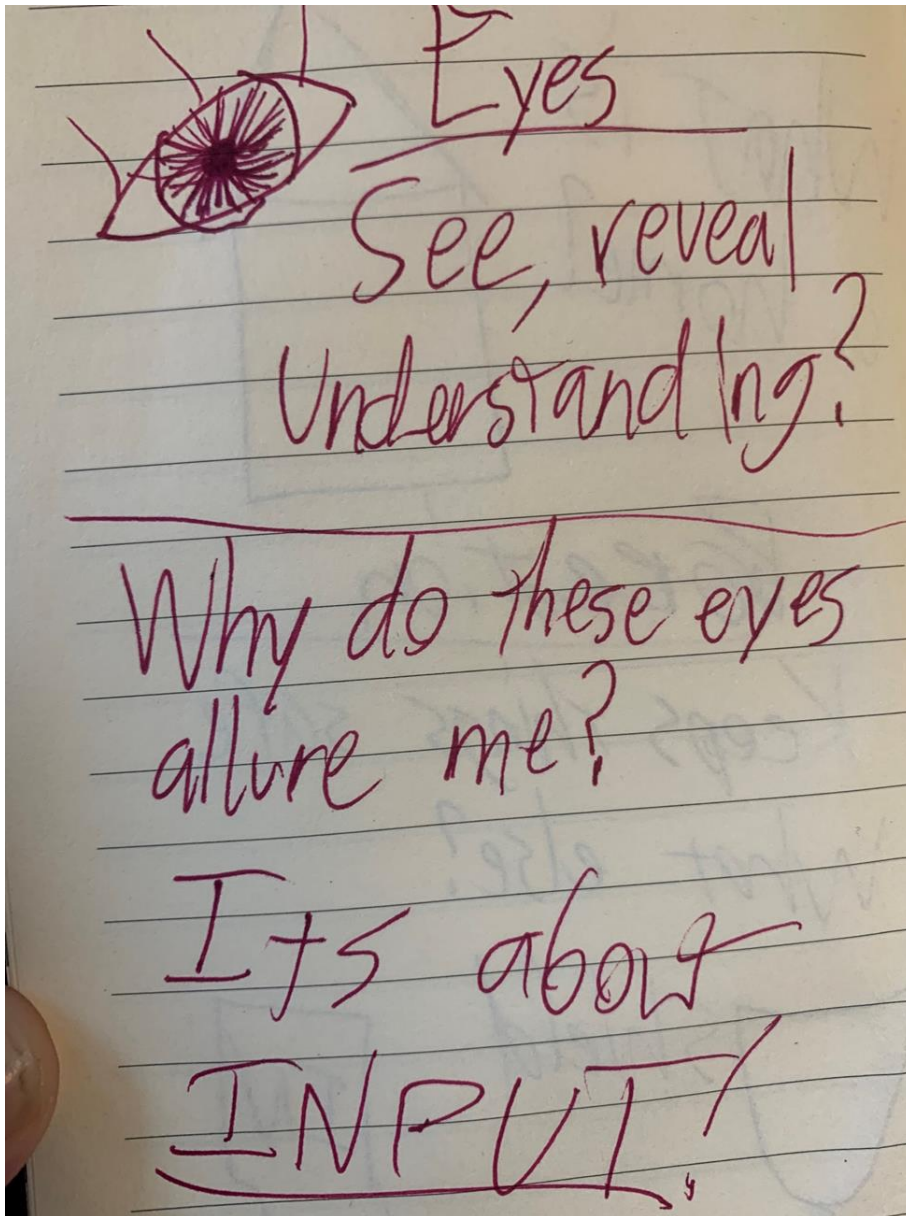 Eyes
See, reveal
Understanding?
Why do these eyes
allure me?
Its about
INPUT!